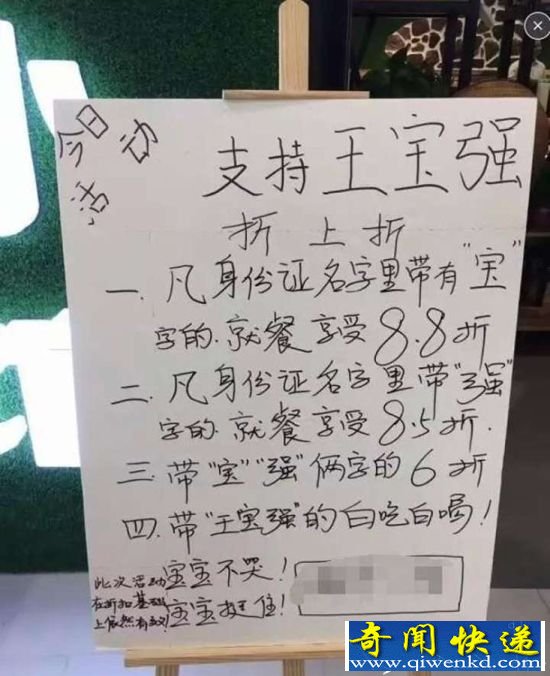 今日
活动
支持王宝强
折上折
一.凡身份证名字里带有"宝"
字的.就餐享受8.8折
二.凡身份证名字里带"强"
字的.就餐享受8.5折.
三.带"宝""强"俩字的6折
四.带"王宝强"的白吃白喝!
此次活动
在折扣基础
上依然有效!
宝宝不哭!
宝宝挺住!
奇闻快递
www.qiwenkd.com